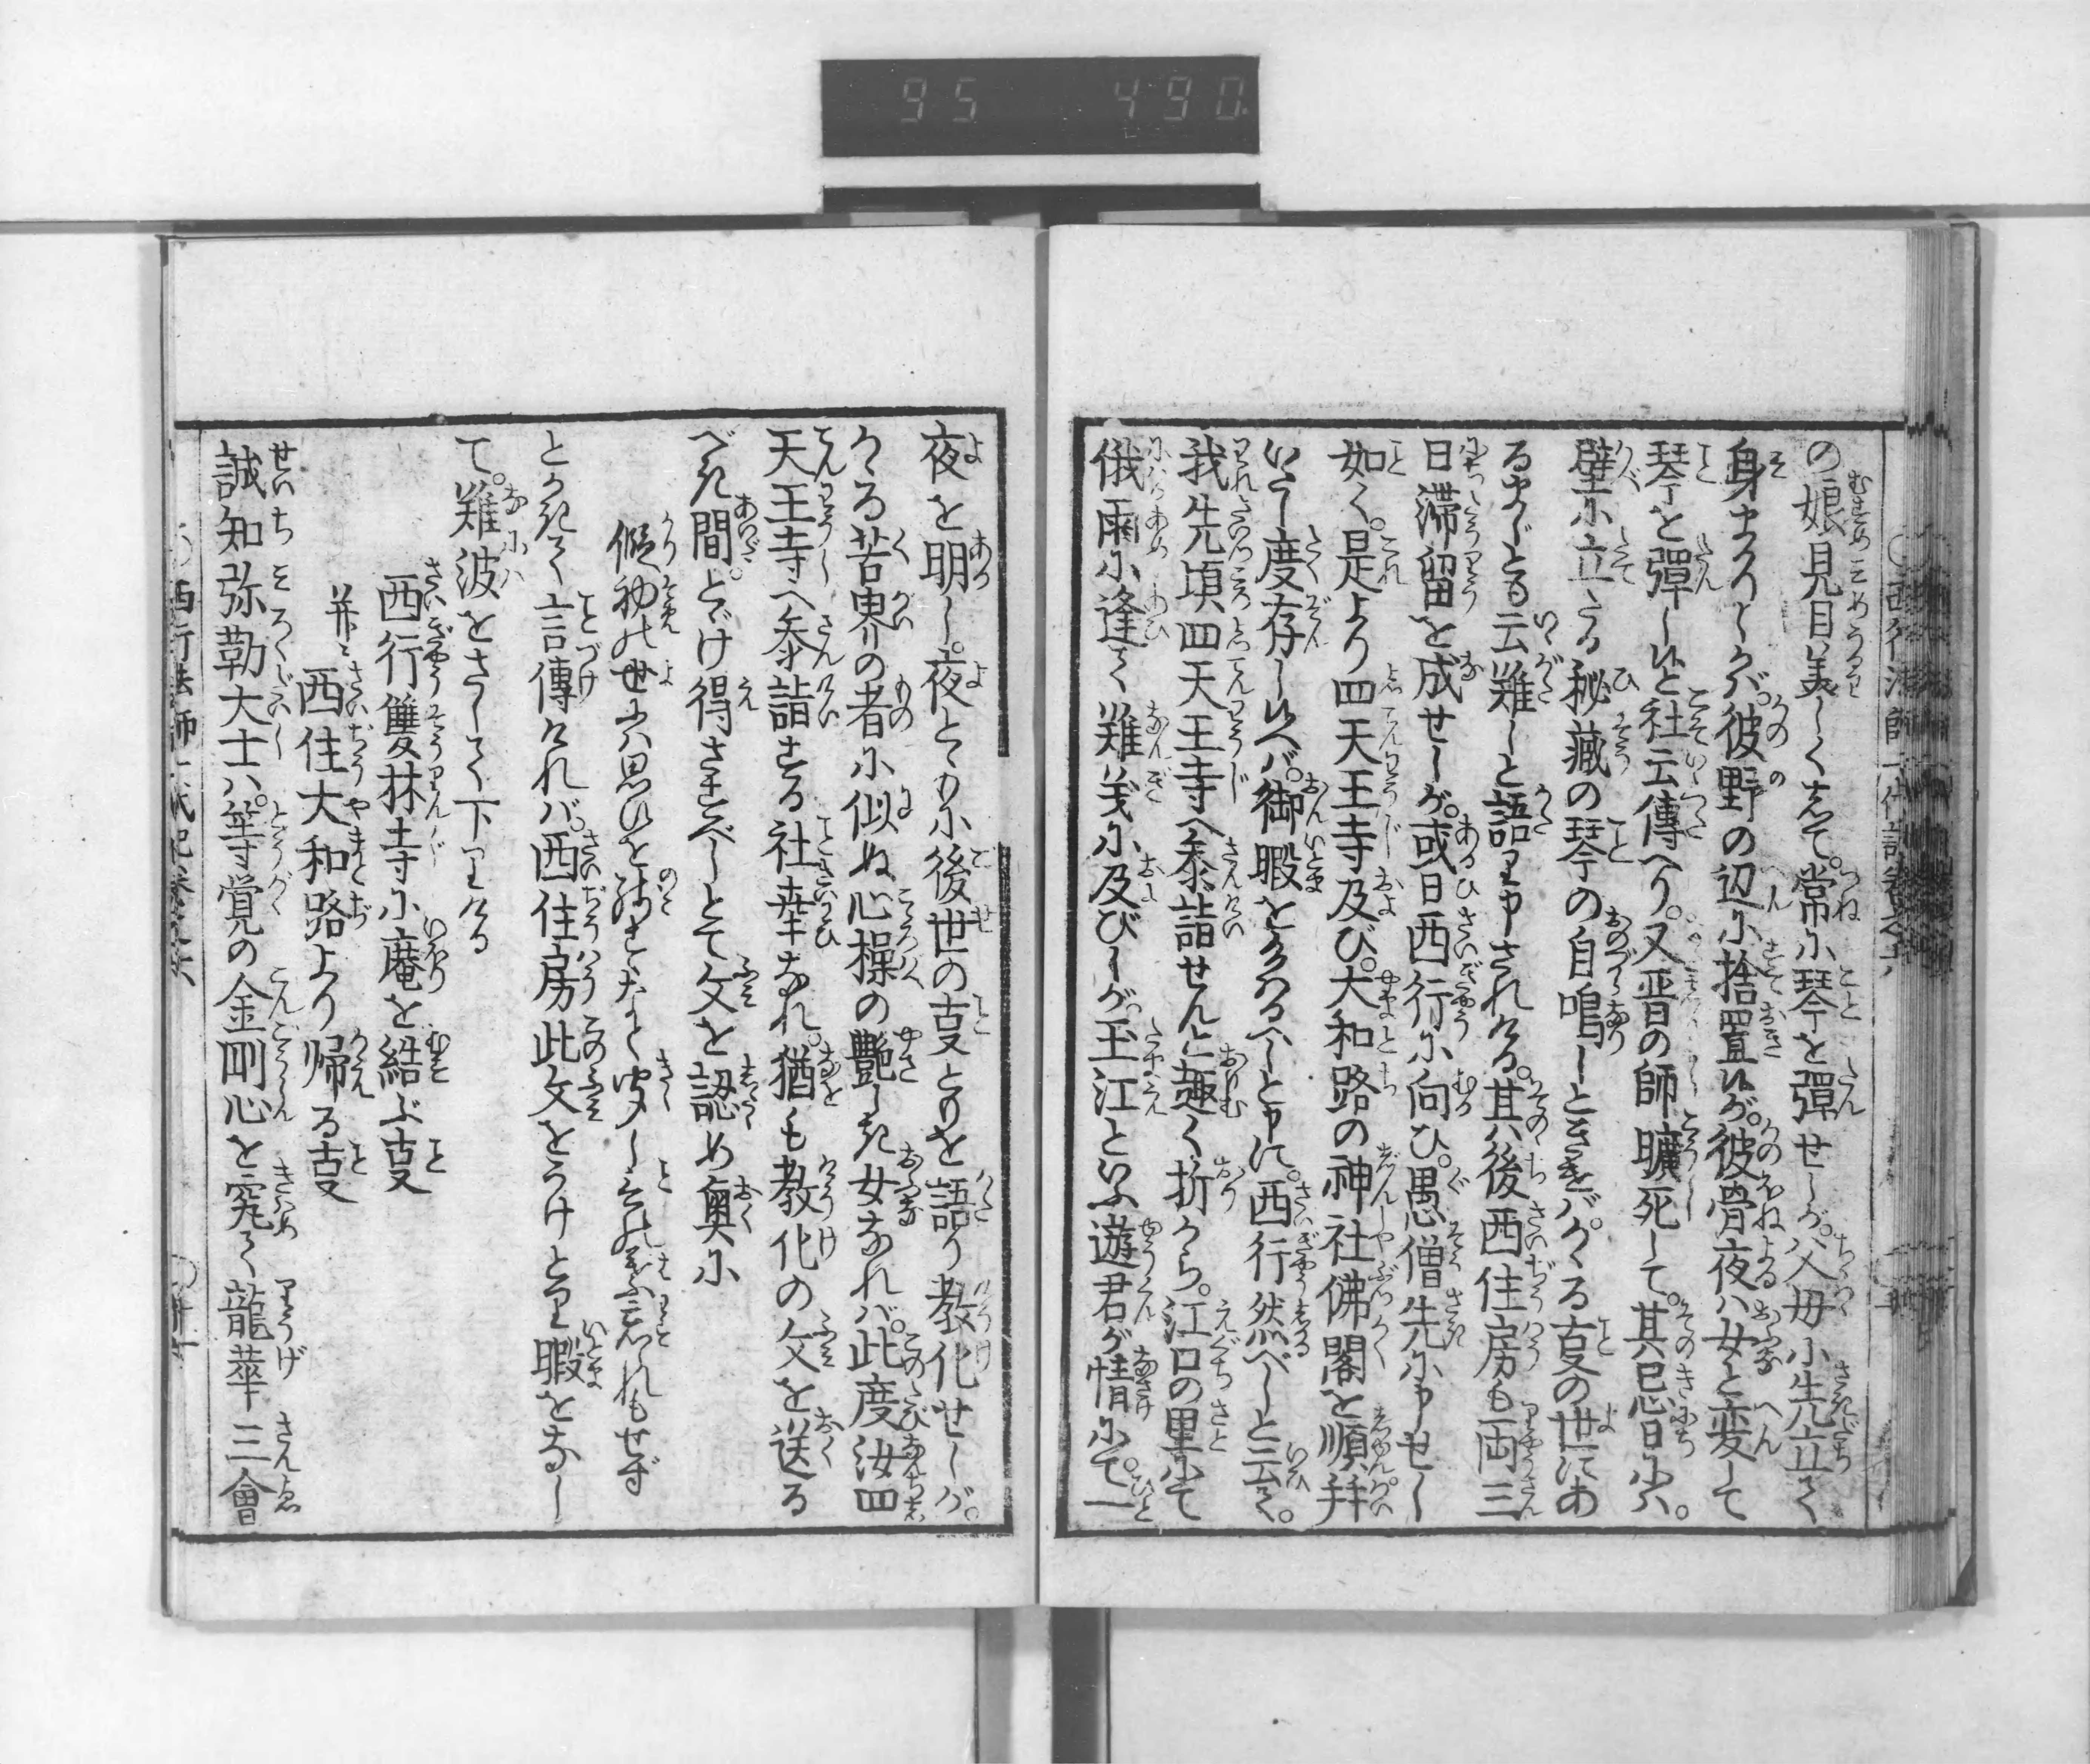 95 490
の娘見目美しくして。常に琴を彈せしが。父母に先立て
身まかりしが。彼野の辺に捨置しが。彼骨夜ハ女と変して
琴を彈しゝと社云傳へり。又晋の師曠死して。其忌日にハ。
壁に立たる秘蔵の琴の自鳴しときけバ。かゝる叓の世にあ
るまじとも云難しと語り申されける。其後西住房も両三
日滞留を成せしが。或日西行に向ひ。愚僧先に申せし
如く。是より四天王寺及び。大和路の神社佛閣を順拝
いたし度存し候へバ。御暇を給るべしと申に。西行然べしと云て。
我先頃四天王寺へ参詣せんと趣く折から。江口の里にて
俄雨に逢て難義に及びしが。玉江といふ遊君が情にて。一
夜を明し。夜とともに後世の叓とりを語り教化せしが。
かゝる苦界の者に似ぬ心操の艶しき女なれバ。此度汝四
天王寺へ参詣する社幸なれ。猶も教化の文を送る
べき間。とゞけ得さすべしとて文を認め奥に
假初の世にハ思ひを残すなと聞し言の葉ふ忘れもせず
とかきて言傳けれバ。西住房此文をうけとり暇をなし
て。難波をさして下りける
西行雙林寺に庵を結ぶ叓
并ニ西住大和路より帰る叓
誠知弥勒大士ハ。等覚の金剛心を究て龍華三會